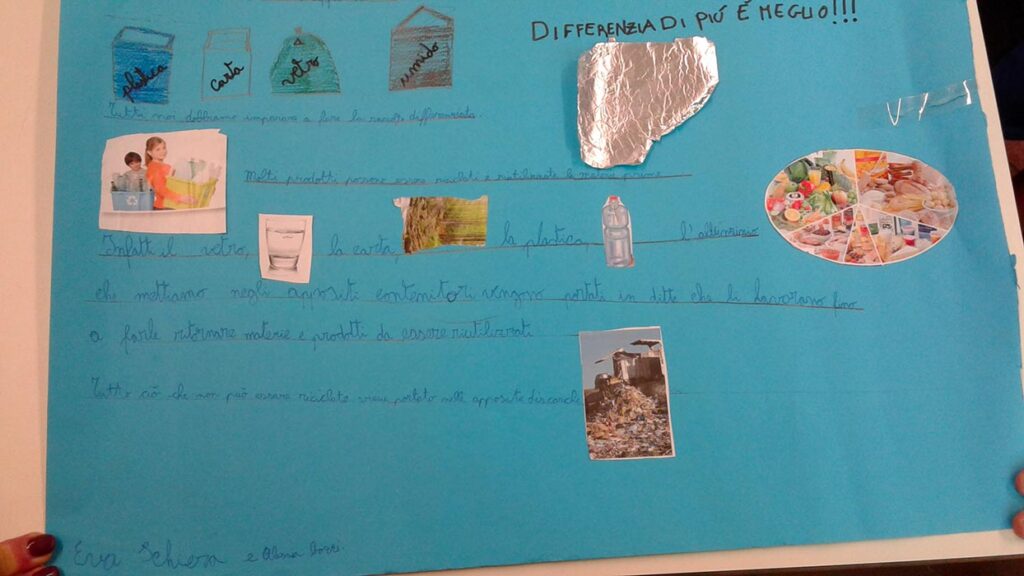 DIFFERENZIA DI PIÚ É MEGLIO!!!
plastica carta vetro umido
Tutti noi dobbiamo imparare a fare la raccolta differenziata.
Molti prodotti possono essere riciclati e riutilizzate le materie prime
Infatti il vetro, la carta, la plastica, l'alluminio
che mettiamo negli appositi contenitori vengono portate in ditte che li lavorano fino
a farle ritornare materie e prodotti da essere riutilizzati
Tutto ciò che non può essere riciclato viene portato nelle apposite discariche
Eva Schiera e